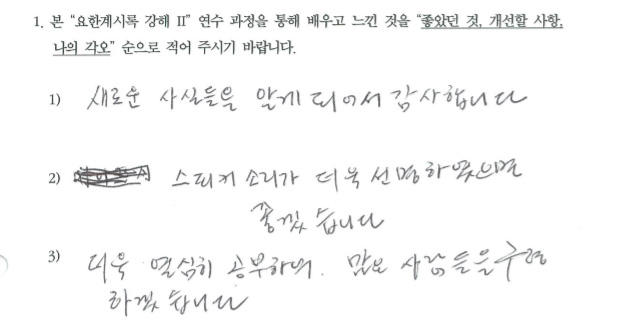 1. 본 “요한계시록 강해 II” 연수 과정을 통해 배우고 느낀 것을 “좋았던 것, 개선할 사항,
나의 각오” 순으로 적어 주시기 바랍니다.
1) 새로운 사실들을 알게 되어서 감사합니다
2) 스피커 소리가 더욱 선명하였으면
좋겠습니다
3) 더욱 열심히 공부하며. 많은 사람들을 구원
하겠습니다